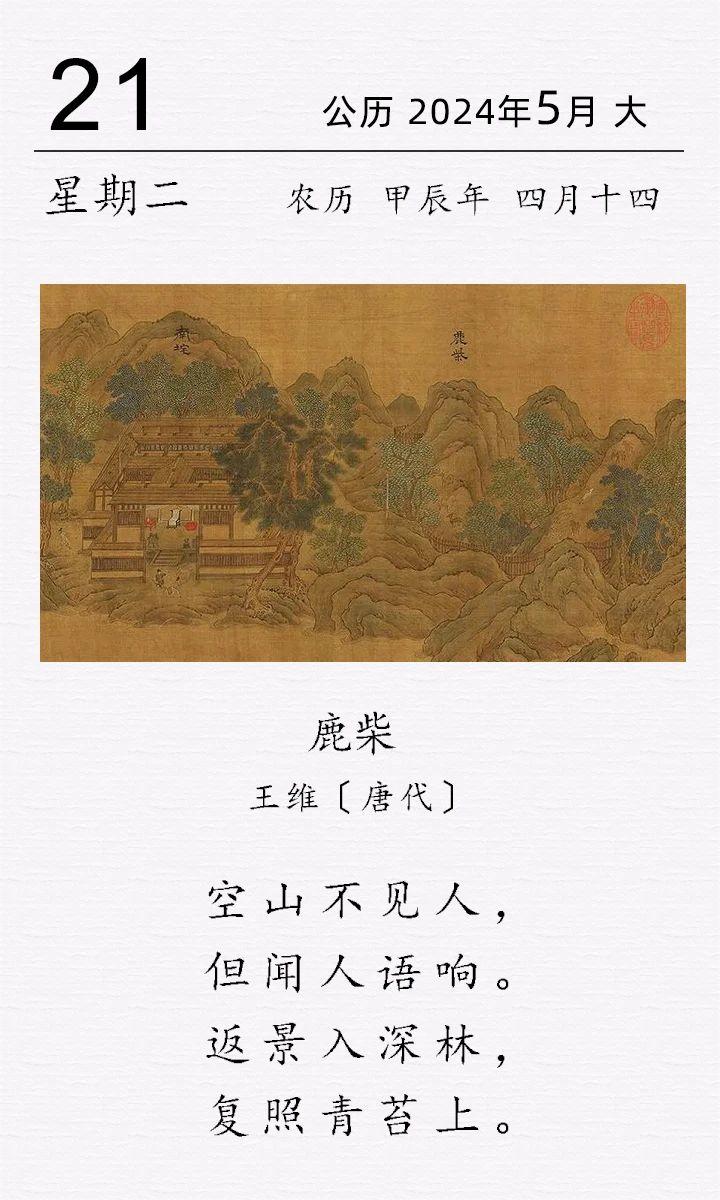 21
公历 2024年5月 大
星期二
农历 甲辰年 四月十四
南垞
鹿柴
鹿柴
王维〔唐代〕
空山不见人，
但闻人语响。
返景入深林，
复照青苔上。